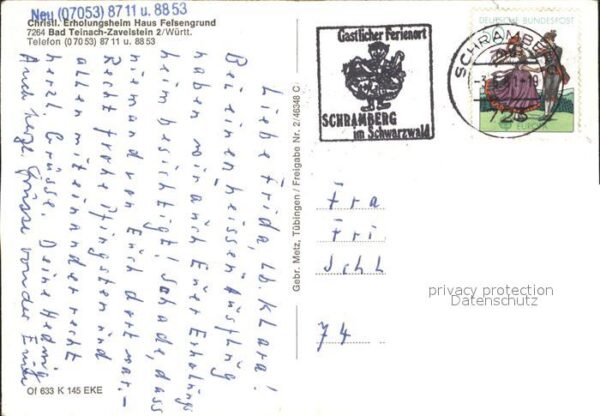 Neu (07053) 87 11 u. 88 53
Christl. Erholungsheim Haus Felsengrund
7264 Bad Teinach-Zavelstein 2/Württ.
Telefon (07053) 87 11 u. 88 53
Liebe Frida, lb. Klara!
Bei einem heissen Ausflug
haben wir auch Euer Erholungs
heim besichtigt! Schade, dass
niemand von Euch dort war. –
Recht frohe Pfingsten und
allen miteinander recht
herzl. Grüsse. Deine Hedwig
Auch herzl. Grüsse von der
Of 633 K 145 EKE
Gebr. Metz, Tübingen / Freigabe Nr. 2/46348 C
Gastlicher Ferienort
SCHRAMBERG
im Schwarzwald
SCHRAMBERG
DEUTSCHE BUNDESPOST
EUROPA
Fra
Fri
Schl
74
privacy protection
Datenschutz